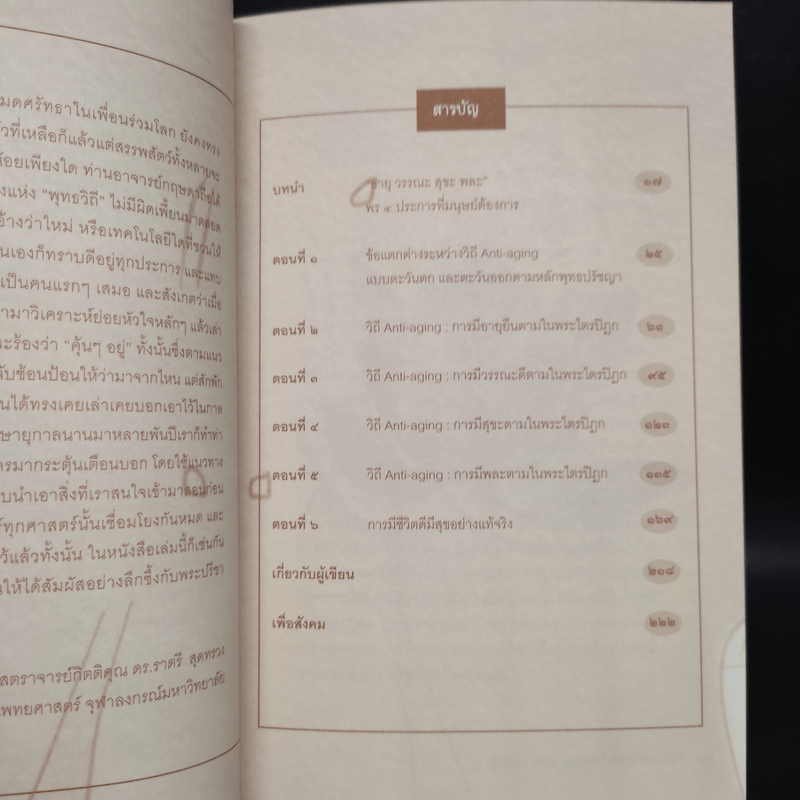 มดศรัทธาในเพื่อนร่วมโลก ยังคงทรง
ที่เหลือก็แล้วแต่สรรพสัตว์ทั้งหลายจะ
น้อยเพียงใด ท่านอาจารย์กฤษดาถือได้
แห่ง "พุทธวิถี" ไม่มีผิดเพี้ยนมาตลอด
อ้างว่าใหม่ หรือเทคโนโลยีใดที่ชวนให้
นเองก็ทราบดีอยู่ทุกประการ และแทบ
เป็นคนแรกๆ เสมอ และสังเกตว่าเมื่อ
ามาวิเคราะห์ย่อยหัวใจหลักๆ แล้วเล่า
ะร้องว่า "คุ้นๆ อยู่" ทั้งนั้นซึ่งตามแนว
ับซ้อนป้อนให้ว่ามาจากไหน แต่สักพัก
นได้ทรงเคยเล่าเคยบอกเอาไว้ในกาล
ษายุกาลนานมาหลายพันปีเราก็ทำท่า
ครมากระตุ้นเตือนบอก โดยใช้แนวทาง
บนำเอาสิ่งที่เราสนใจเข้ามาสอนก่อน
์ทุกศาสตร์นั้นเชื่อมโยงกันหมด และ
ว้แล้วทั้งนั้น ในหนังสือเล่มนี้ก็เช่นกัน
นให้ได้สัมผัสอย่างลึกซึ้งกับพระปรีชา
สตราจารย์กิตติคุณ ดร.ราตรี สุดทรวง
แพทยศาสตร์ จุฬาลงกรณ์มหาวิทยาลัย
สารบัญ
บทนำ "อายุ วรรณะ สุขะ พละ" ๑๗
พร ๔ ประการที่มนุษย์ต้องการ
ตอนที่ ๑ ข้อแตกต่างระหว่างวิถี Anti-aging ๒๕
แบบตะวันตก และตะวันออกตามหลักพุทธปรัชญา
ตอนที่ ๒ วิถี Anti-aging : การมีอายุยืนตามในพระไตรปิฎก ๖๑
ตอนที่ ๓ วิถี Anti-aging : การมีวรรณะดีตามในพระไตรปิฎก ๙๕
ตอนที่ ๔ วิถี Anti-aging : การมีสุขะตามในพระไตรปิฎก ๑๒๓
ตอนที่ ๕ วิถี Anti-aging : การมีพละตามในพระไตรปิฎก ๑๓๕
ตอนที่ ๖ การมีชีวิตดีมีสุขอย่างแท้จริง ๑๖๙
เกี่ยวกับผู้เขียน ๒๑๘
เพื่อสังคม ๒๒๒